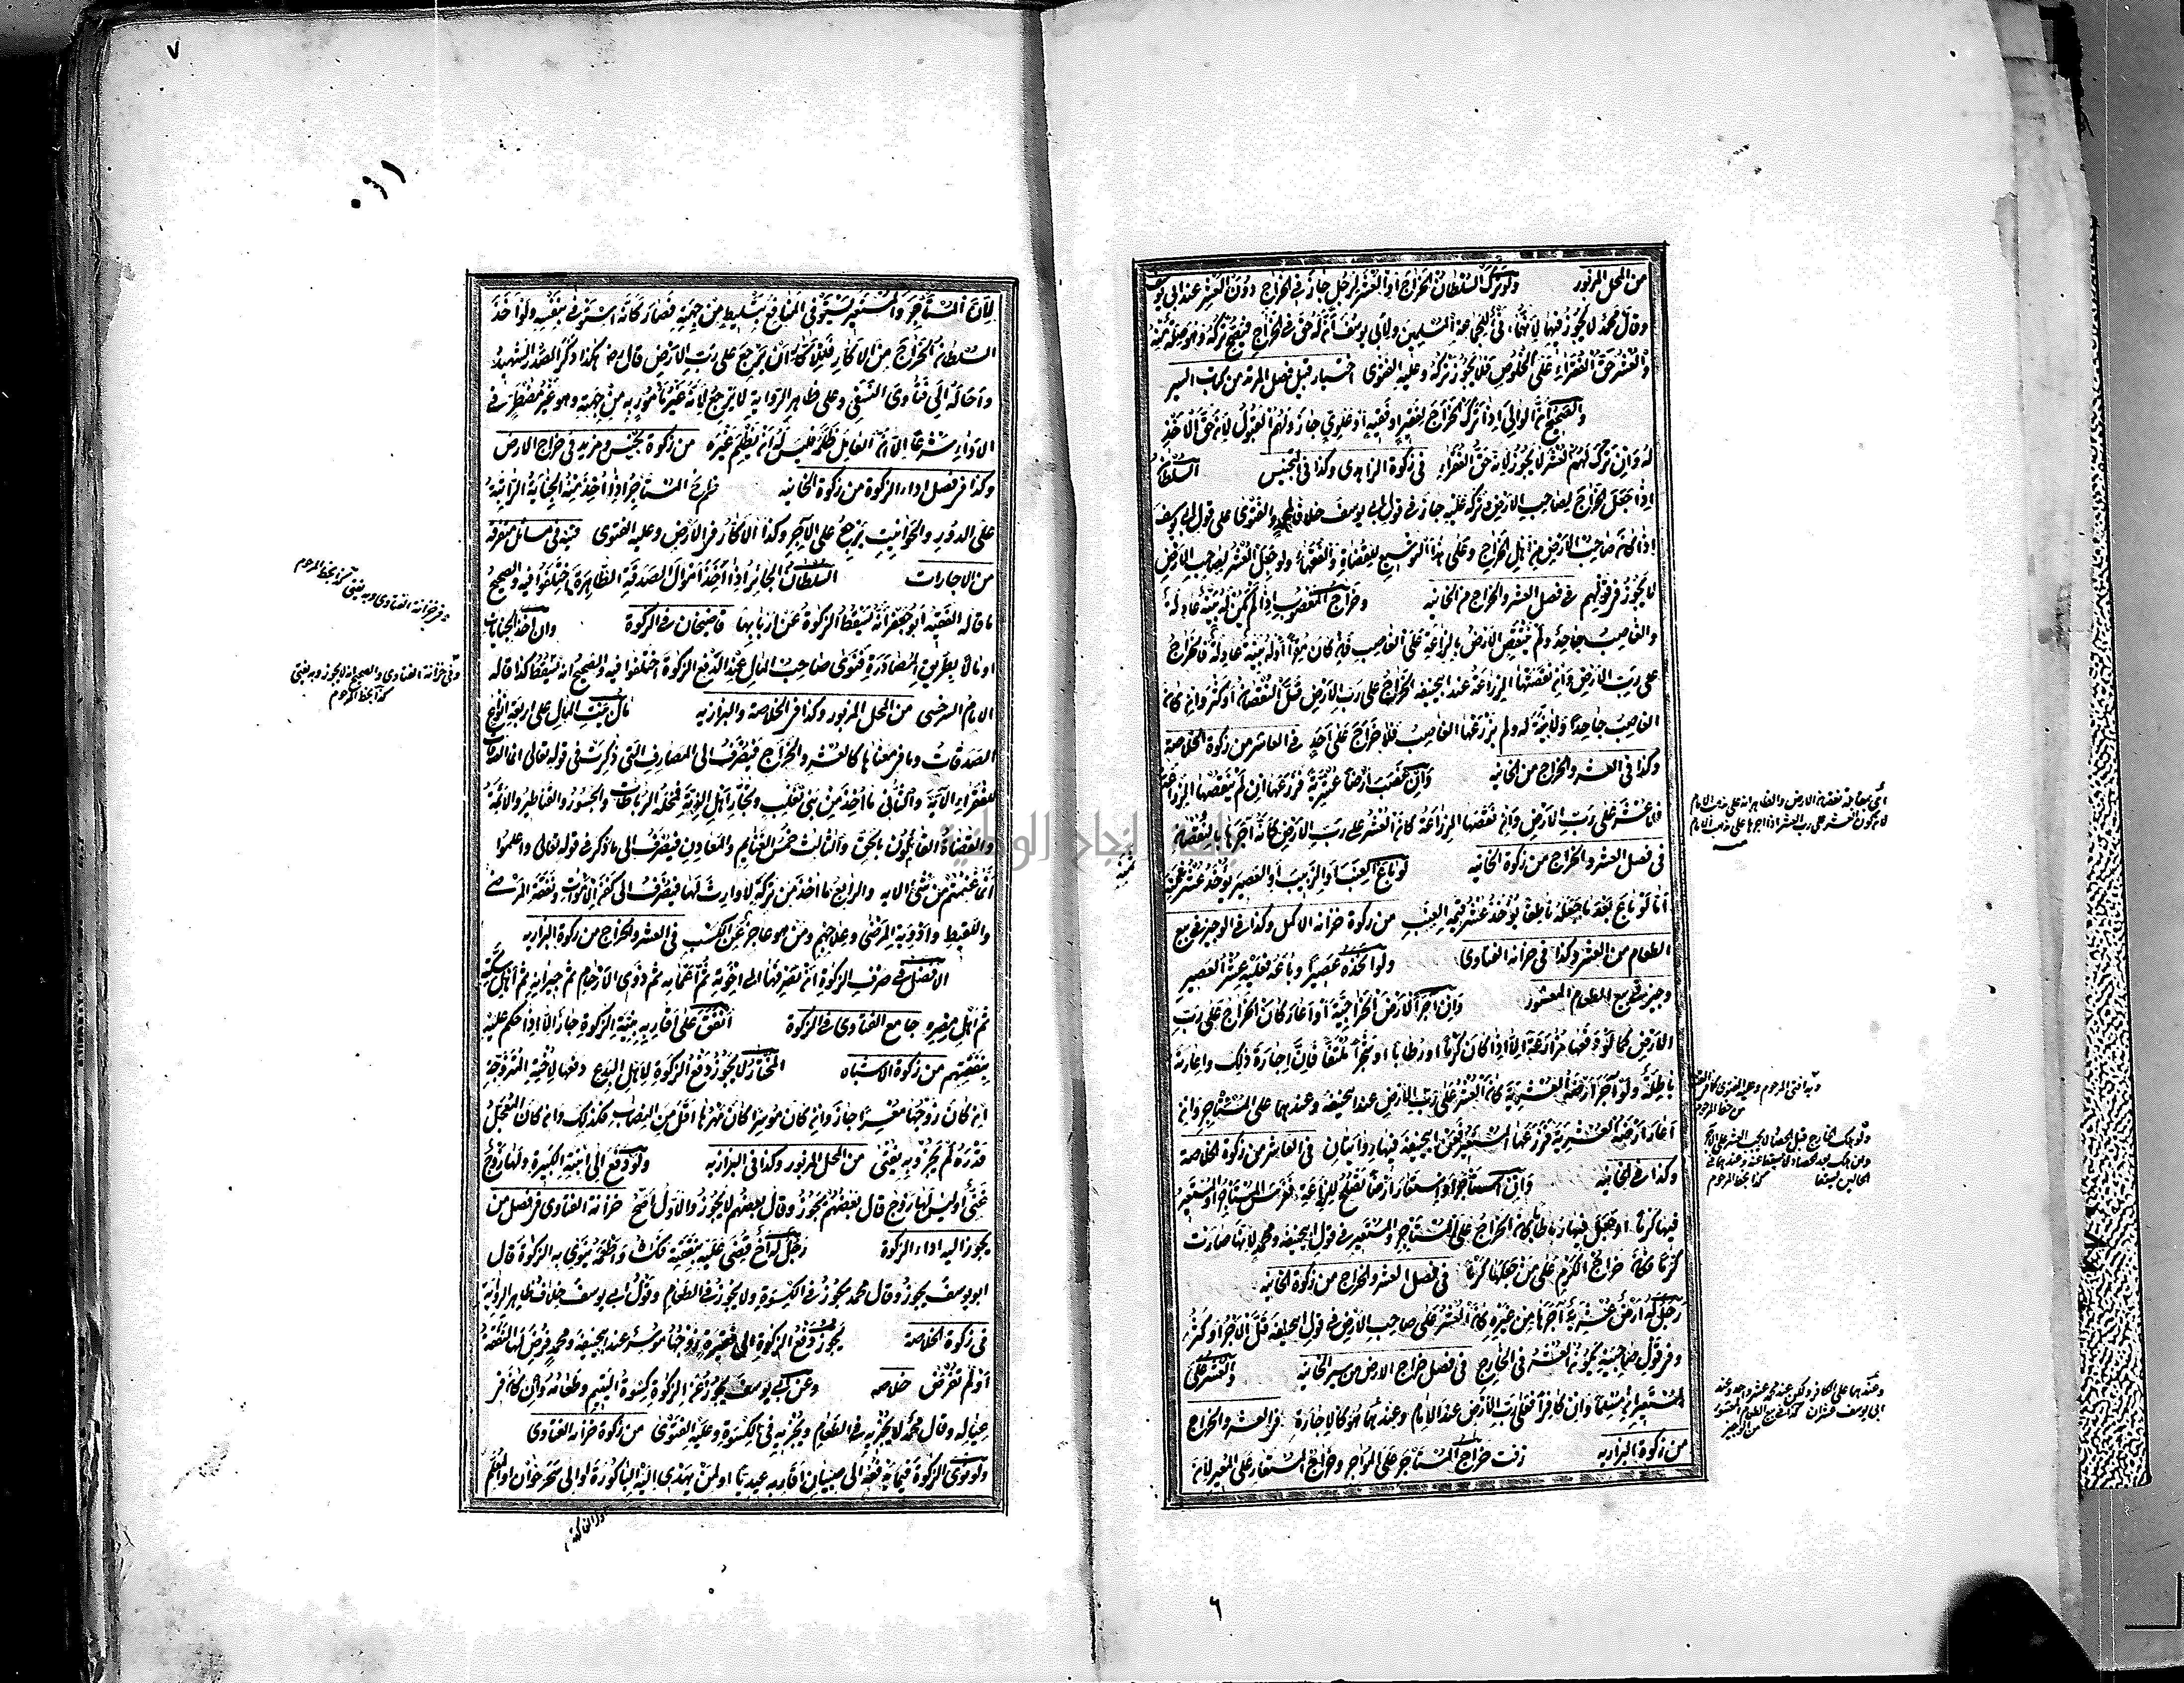 من المحل المزبور ولو ترك السلطان الخراج او العشر لرجل جاز في الخراج دون العشر عند ابي يوسف
وقال محمد لا يجوز فيها لانها فئ لجماعة المسلمين ولابي يوسف ان له حق في الخراج فيصح تركه وهو صلة منه
والعشر حق الفقراء على الخلوص فلا يجوز تركه وعليه الفتوى اختيار قبل فصل المرتد من كتاب السير
والصحيح ان الوالي اذا ترك الخراج لفقير او فقيه او علوي جاز ولهم القبول لان حق الاخذ
له وان ترك لهم العشر لا يجوز لانه حق الفقراء في زكوة الزاهدي وكذا في التجنيس السلطان
اذا جعل الخراج لصاحب الارض وتركه عليه جاز في قول ابي يوسف خلافا لمحمد والفتوى على قول ابي يوسف
اذا كان صاحب الارض من اهل الخراج وعلى هذا التوسيع للقضاة والفقهاء ولو جعل العشر لصاحب الارض
لا يجوز في قولهم في فصل العشر والخراج من الخانيه وخراج المغصوب اذا لم يكن له بينة عادلة
والغاصب جاحد ولم تنقص الارض بالزراعة على الغاصب فان كان مقرا او له بينة عادلة فالخراج
على رب الارض وان نقصتها الزراعة عند ابحنيفه الخراج على رب الارض قل النقصان او كثر وان كان
الغاصب جاحدا ولا بينة له ولم يزرعها الغاصب فلا خراج على احد في العاشر من زكوة الخلاصة
وكذا في العشر والخراج من الخانيه وان غصب ارضا عشرية فزرعها ان لم ينقصها الزراعة
فلا عشر على رب الارض وان نقصتها المزارعة كان العشر على رب الارض كانه آجرها بالنقصان
في فصل العشر والخراج من زكوة الخانيه لو باع العنب او الزبيب او العصير يؤخذ عشر ثمنه
اما لو باع بعد ما جعله ناطفا يؤخذ عشر قيمة العنب من زكوة خزانه الاكمل وكذا في الوجيز في بيع
الطعام من العشر وكذا في خزانه الفتاوى ولو اتخذه عصيرا وباعه فعليه عشر العصير
وجيز في بيع الطعام المعشور وان آجر الارض الخراجية او اعار كان الخراج على رب
الارض كما لو دفعها مزارعة الا اذا كان كرما او رطابا او شجرا ملتفا فان اجارة ذلك واعارته
باطلة ولو آجر ارضه العشرية كان العشر على رب الارض عند ابحنيفه وعندهما على المستاجر وان
اعار ارضه العشرية فزرعها المستعير فعن ابحنيفه فيها روايتان في العاشر من زكوة الخلاصة
وكذا في الخانيه وان استاجر او استعار ارضا تصلح للزراعة فغرس المستاجر او المستعير
فيها كرما او جعل فيها رطابا كان الخراج على المستاجر والمستعير في قول ابحنيفه ومحمد لانها صارت
كرما فكان خراج الكرم على من جعلها كرما في فصل العشر والخراج من زكوة الخانيه
رجل له ارض عشرية آجرها من غيره كان العشر على صاحب الارض في قول ابحنيفه قل الاجر او كثر
وفي قول صاحبيه يكون العشر في الخارج في فصل خراج الارض من سير الخانيه والعشر على
المستعير ان مسلما وان كافرا فعلى رب الارض عند الامام وعندهما هو كالاجارة في العشر والخراج
من زكوة البزازيه خراج المستاجر على المؤاجر وخراج المستعار على المعير لان
اي بمقابلة نقصان الارض
وعندهما على الكافر ولكن عند محمد عشر واحد وعند
ابي يوسف عشران كذا في بيع الطعام المعشور
من الوجيز
٦
٧
لان المستاجر والمستعير يستوفى المنافع بتسليط من جهته فصار كانه استوفى بنفسه ولو اخذ
السلطان الخراج من الاكار فللاكار ان يرجع على رب الارض قال رضـ هكذا ذكر الصدر الشهيد
واحاله الى فتاوى النسفي وعلى ظاهر الرواية لا يرجع لانه غير مامور به من جهته وهو غير مضطر في
الاداء شرعا الا ان العامل ظلمه فليس له ان يظلم غيره من زكوة تجنيس ومزيد في خراج الارض
وكذا في فصل اداء الزكوة من زكوة الخانيه المستاجر اذا اخذ منه الجباية الراتبة
على الدور والحوانيت يرجع على الآجر وكذا الاكار في الارض وعليه الفتوى قنيه في مسائل متفرقه
من الاجارات السلطان الجائر اذا اخذ اموال الصدقة الظاهرة اختلفوا فيه والصحيح
ما قاله الفقيه ابو جعفر انه يسقط الزكوة عن اربابها قاضيخان في الزكوة وان اخذ الجبايات
او مالا بطريق المصادرة فنوى صاحب المال عند الدفع الزكوة اختلفوا فيه والصحيح انه يسقط كذا قاله
الامام السرخسي من المحل المزبور وكذا في الخلاصة والبزازيه مال بيت المال على اربعة انواع
الصدقات وما في معناها كالعشر والخراج فيصرف الى المصارف التي ذكرت في قوله تعالى انما الصدقات
للفقراء الآية والثاني ما اخذ من بني تغلب وتجار اهل الذمة فتتخذ الرباطات والجسور والقناطير والائمة
والقضاة العاملون بالحق والثالث خمس الغنائم والمعادن فيصرف الى ما ذكر في قوله تعالى واعلموا
انما غنمتم من شئ الايه والرابع ما اخذ من تركة لا وارث لها فيصرف الى كفن الاموات ونفقة المرضى
واللقيط وادوية المرضى وعلاجهم ومن هو عاجز عن الكسب في العشر والخراج من زكوة البزازيه
الافضل في صرف الزكوة ان يصرفها الى اخوته ثم اعمامه ثم ذوي الارحام ثم جيرانه ثم اهل سكته
ثم اهل مصره جامع الفتاوى في الزكوة انفق على اقاربه بنية الزكوة جاز الا اذا حكم عليه
بنفقتهم من زكوة الاشباه المختار لا يجوز دفع الزكوة لاهل البدع دفعها لاخته المتزوجة
ان كان زوجها معسرا جاز وان كان موسرا كان مهرها اقل من النصاب فكذلك وان كان المعجل
قدره لم يجز وبه يفتى من المحل المزبور وكذا في البزازيه ولو دفع الى ابنته الكبيرة ولها زوج
غني او ليس لها زوج قال بعضهم يجوز وقال بعضهم لا يجوز والاول اصح خزانة الفتاوى في فصل من
يجوز اليه اداء الزكوة رجل له اخ قضى عليه بنفقته فكساه واطعمه ينوى به الزكوة قال
ابو يوسف يجوز وقال محمد يجوز في الكسوة ولا يجوز في الطعام وقول ابي يوسف خلاف ظاهر الرواية
في زكوة الخلاصة يجوز دفع الزكوة الى فقيرة زوجها موسر عند ابحنيفه ومحمد فرض لها النفقة
او لم تفرض خلاصه وعن ابي يوسف يجوز عن الزكوة كسوة اليتيم وطعامه وان كان في
عياله وقال محمد لا يجزيه في الطعام ويجزيه في الكسوة وعليه الفتوى من زكوة خزانه الفتاوى
ولو نوى الزكوة فيما يدفعه الى صبيان اقاربه عيديا او لمن يهدى اليه الباكورة او الى سحرخوان او المعلم
وفي خزانة الفتاوى وبه يفتى كذا بخط المرحوم
وفي خزانة الفتاوى والصحيح انه لا يجوز وبه يفتى
كذا بخط المرحوم